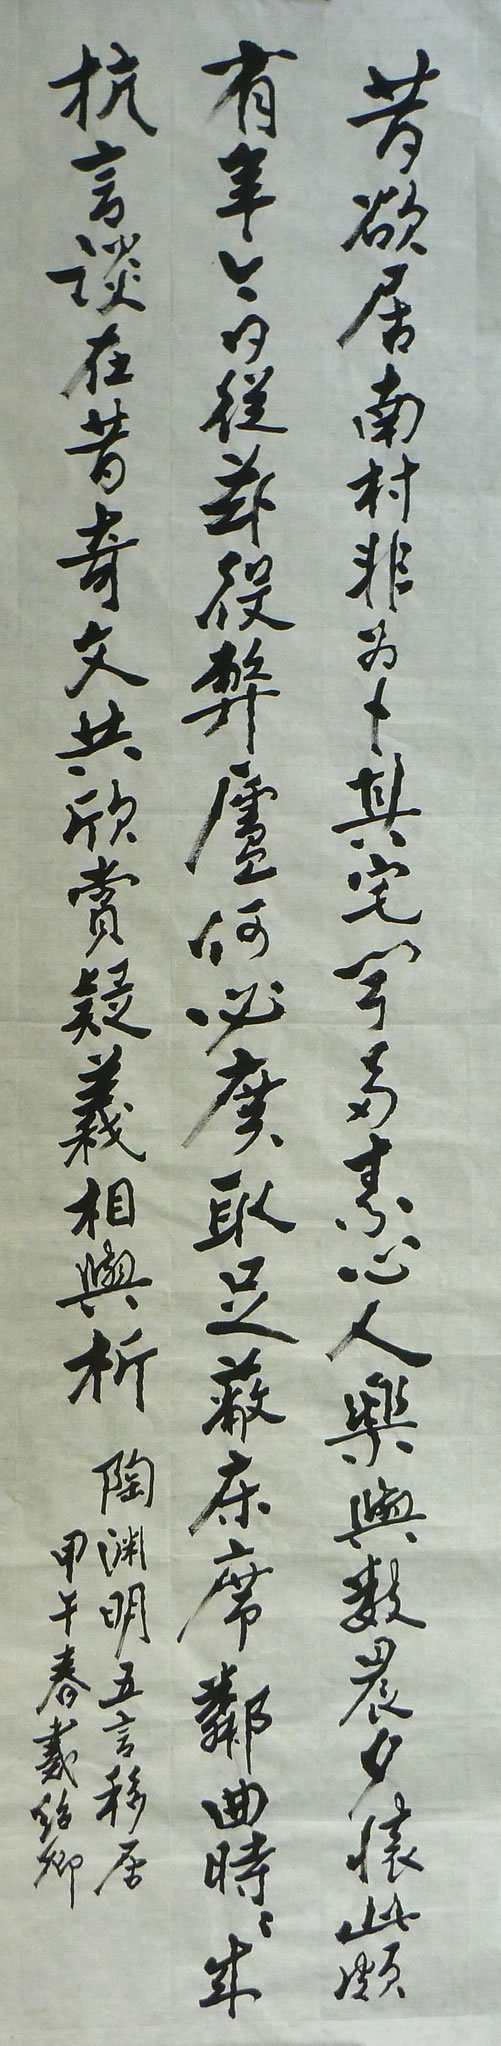 昔欲居南村非为卜其宅闻多素心人樂與數晨夕懷此頗
有年今日從兹役弊廬何必廣取足蔽床席鄰曲時々来
抗言談在昔奇文共欣賞疑義相與析
陶渊明五言移居
甲午春